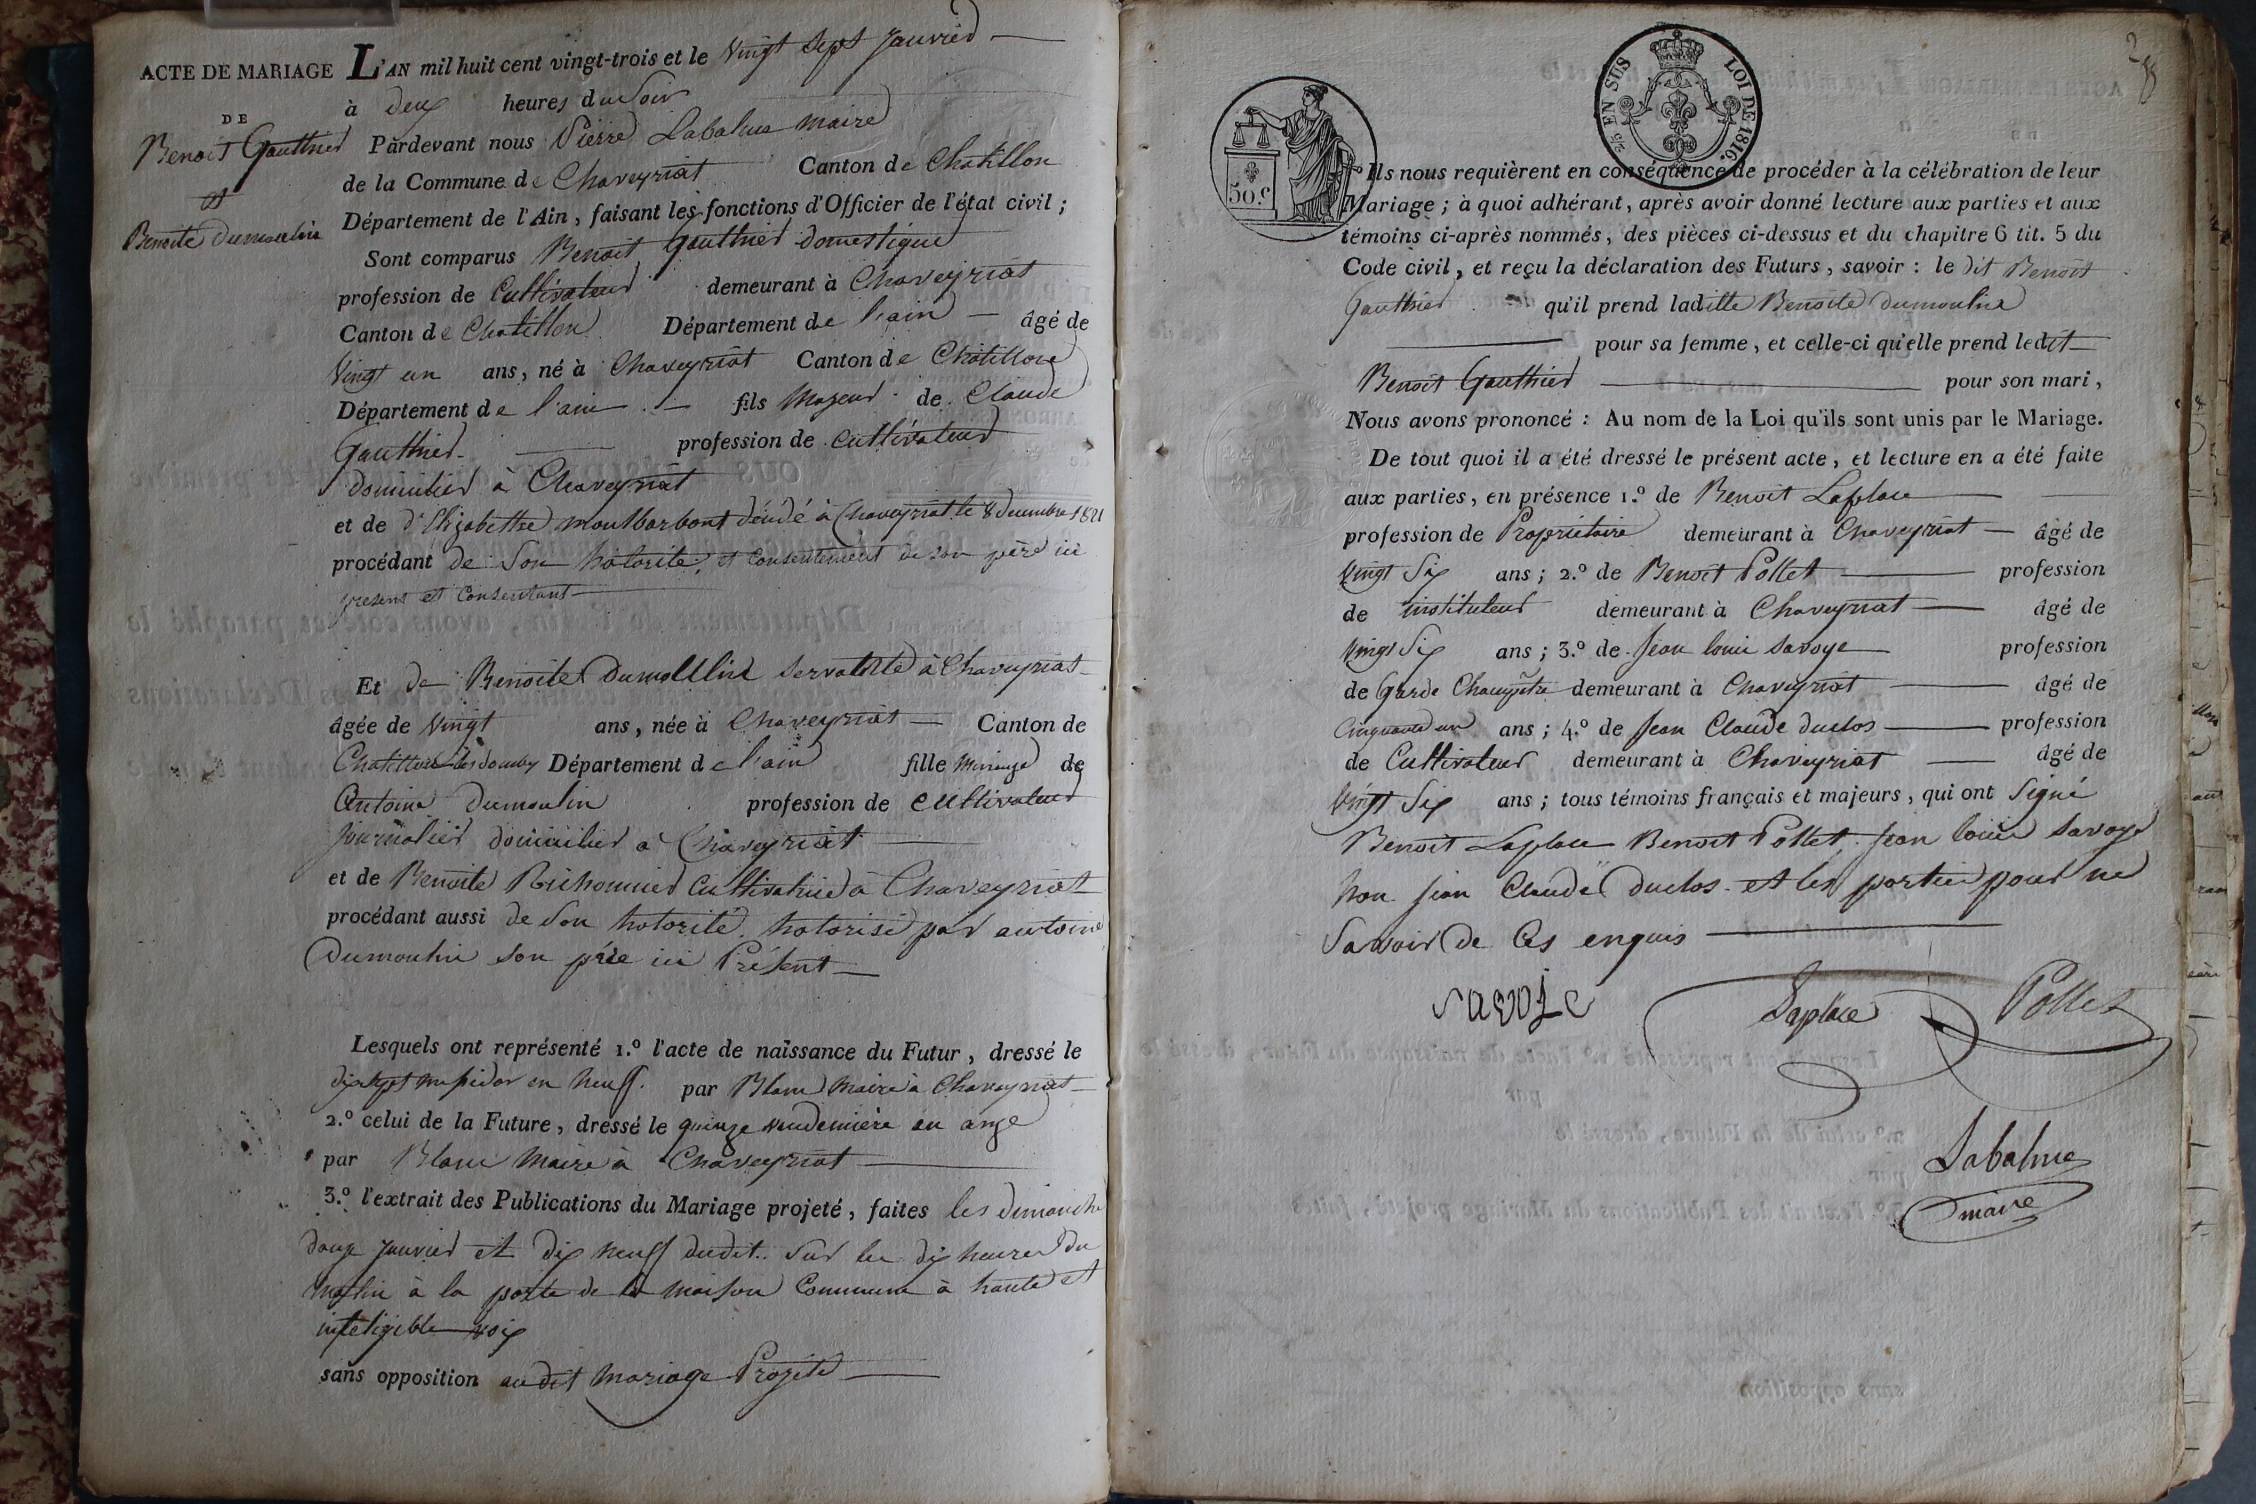 ACTE DE MARIAGE
DE
Benoit Gauthier
et
Benoite dumoulin
L'AN mil huit cent vingt-trois et le Vingt Sept Janvier
à deux heures du Soir
Pardevant nous Pierre Labalme maire
de la Commune de Chaveyriat Canton de Chatillon
Département de l'Ain, faisant les fonctions d'Officier de l'état civil ;
Sont comparus Benoit Gauthier domestique
profession de Cultivateur demeurant à Chaveyriat
Canton de Chatillon Département de l'ain âgé de
Vingt un ans, né à Chaveyriat Canton de Châtillon
Département de l'ain fils Majeur de Claude
Gauthier profession de cultivateur
domicilier à Chaveyriat
et de d'Elizabethe montbarbont décédé à Chaveyriat le 8 decembre 1821
procédant de Son hotorite, et consentement de son père ici
present et Consentant
Et de Benoite Dumoulin servante à Chaveyriat
âgée de Vingt ans, née à Chaveyriat Canton de
Chatillon les dombes Département de l'ain fille Mineure de
Antoine Dumoulin profession de cultivateur
Journalier domicilier a Chaveyriat
et de Benoite Richonnier Cultivatrice à Chaveyriat
procédant aussi de Son hotorité, hotorisé par antoine
Dumoulin son père ici Présent
Lesquels ont représenté 1.º l'acte de naissance du Futur, dressé le
dix sept mesidor en neuff. par Blanc Maire à Chaveyriat
2.º celui de la Future, dressé le quinze vendemière an onze
par Blanc Maire à Chaveyriat
3.º l'extrait des Publications du Mariage projeté, faites les dimanche
douze Janvier et dix neuff dudit.. Sur les dix heures du
matin à la porte de la maison Commune à haute et
inteligible voix
sans opposition audit Mariage Projeté
50.c
2/5 EN SUS
LOI DE 1816.
2
Ils nous requièrent en conséquence de procéder à la célébration de leur
Mariage ; à quoi adhérant, après avoir donné lecture aux parties et aux
témoins ci-après nommés, des pièces ci-dessus et du chapitre 6 tit. 5 du
Code civil, et reçu la déclaration des Futurs, savoir : le dit Benoit
Gauthier qu'il prend laditte Benoite dumoulin
pour sa femme, et celle-ci qu'elle prend ledit
Benoit Gauthier pour son mari,
Nous avons prononcé : Au nom de la Loi qu'ils sont unis par le Mariage.
De tout quoi il a été dressé le présent acte, et lecture en a été faite
aux parties, en présence 1.º de Benoit Laplace
profession de Propriétaire demeurant à Chaveyriat âgé de
Vingt Six ans ; 2.º de Benoit Pollet profession
de instituteur demeurant à Chaveyriat âgé de
Vingt Six ans ; 3.º de Jean louis savoye profession
de Garde Champêtre demeurant à Chaveyriat âgé de
Cinquante un ans ; 4.º de Jean Claude duclos profession
de Cultivateur demeurant à Chaveyriat âgé de
Vingt Six ans ; tous témoins français et majeurs, qui ont Signé
Benoit Laplace Benoit Pollet Jean louis Savoye
non Jean Claude duclos et les partie pour ne
Savoir de Ces enquis
savoie Laplace Pollet
Labalme
maire